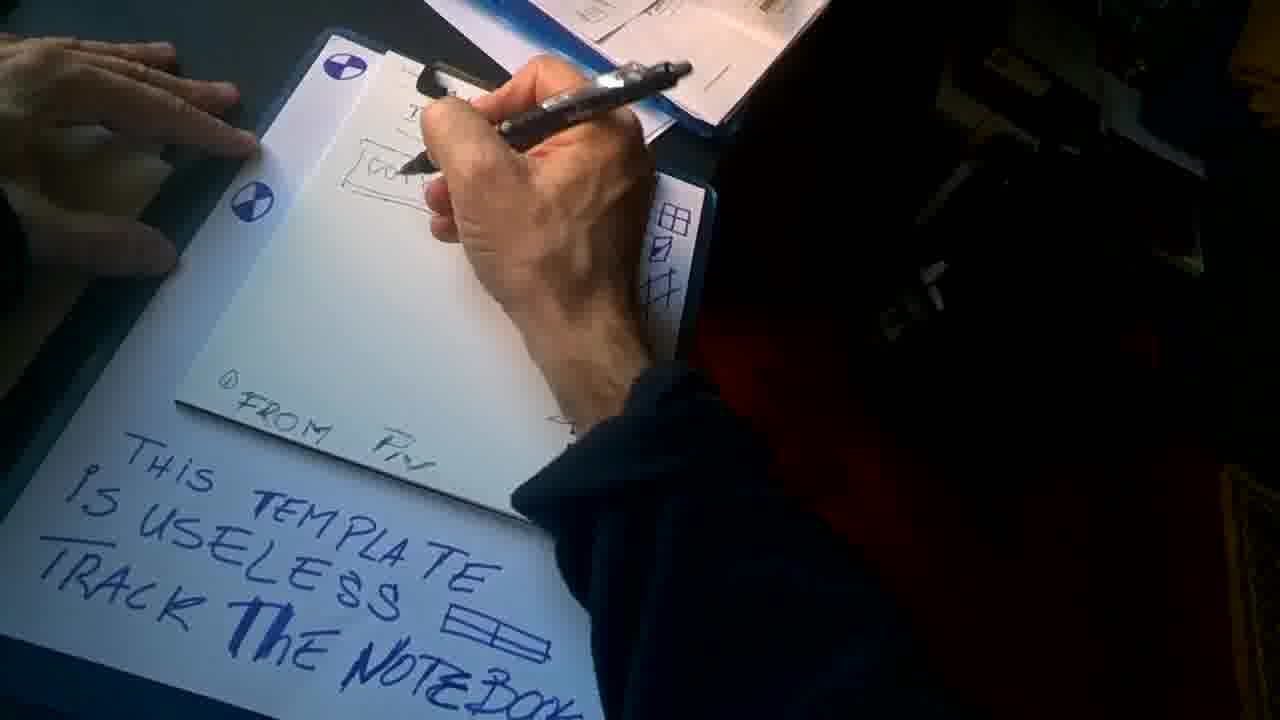 ① FROM
THIS TEMPLATE
iS USELESS
TRACK ThE NOTEBOOK